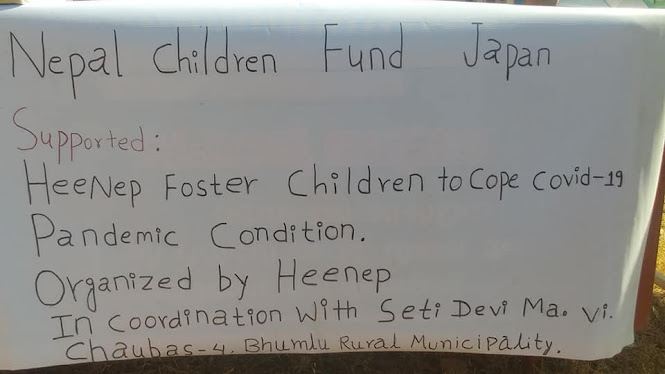 Nepal Children Fund Japan
Supported:
HeeNep Foster Children to Cope Covid-19
Pandemic Condition.
Organized by Heenep
In Coordination With Seti Devi Ma. Vi.
Chaubas-4, Bhumlu Rural Municipality.